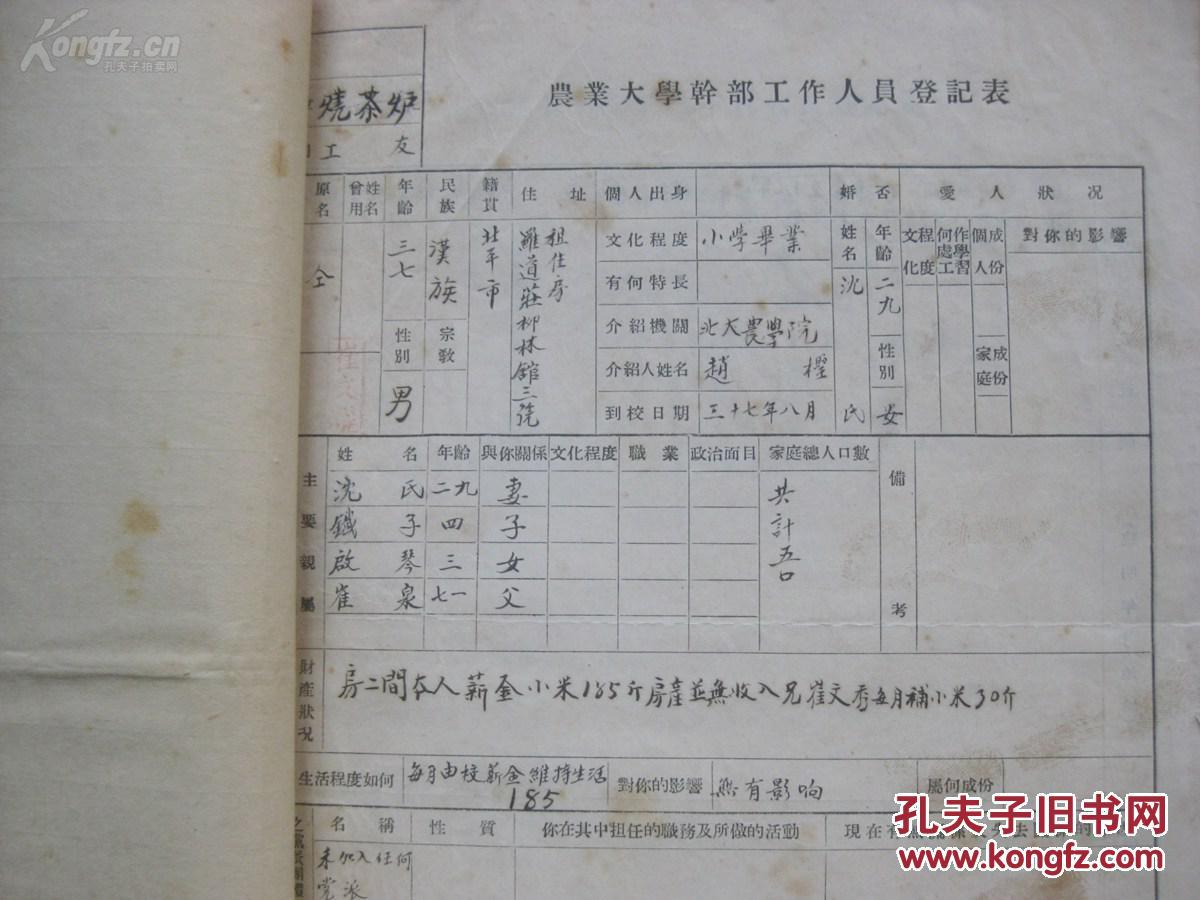 Kongfz.cn
孔夫子拍卖网
農業大學幹部工作人員登記表
燒茶炉
工友
原名
全
曾用姓名
年齡
三七
性別
男
民族
漢族
宗教
籍貫
北平市
住址
租住房
羅道莊柳林舘三號
個人出身
文化程度 小学畢業
有何特長
介紹機關 北大農學院
介紹人姓名 趙
到校日期 三十七年八月
婚否
姓名
沈氏
年齡
二九
性別
女
愛人狀况
文化程度
何處工作學習
個人成份
家庭成份
對你的影響
主要親屬
姓名 年齡 與你關係 文化程度 職業 政治面目 家庭總人口數
沈氏 二九 妻
鐵子 四 子
啟琴 三 女
崔泉 七一 父
共計五口
備考
財產狀况
房二間本人薪金小米185斤房產並無收入兄崔文秀每月補小米30斤
生活程度如何 每月由校薪金維持生活
185
對你的影響 無有影响
屬何成份
名稱 性質 你在其中担任的職務及所做的活動 現在有
未加入任何
党派
孔夫子旧书网
www.kongfz.com